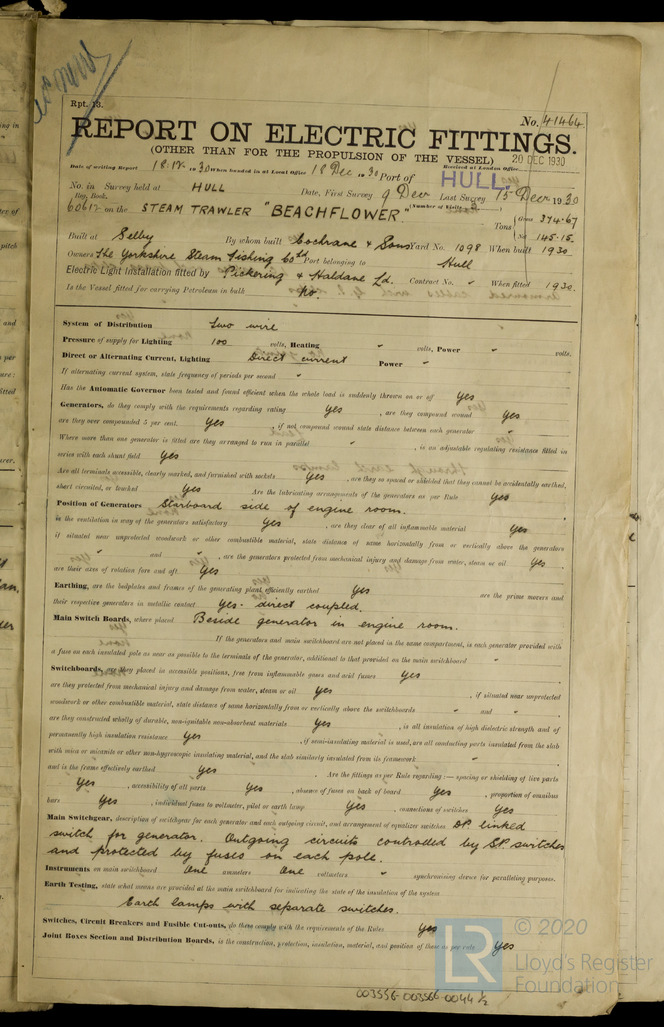 Rpt. 13.
No. 41464
REPORT ON ELECTRIC FITTINGS.
(OTHER THAN FOR THE PROPULSION OF THE VESSEL)
20 DEC 1930
Date of writing Report 18.12. 1930 When handed in at Local Office 18 Dec 1930 Port of HULL. Received at London Office
No. in Survey held at HULL Date, First Survey 9 Decr Last Survey 15 Decr 1930
Reg. Book. (Number of Visits 3)
60612 on the STEAM TRAWLER "BEACHFLOWER." Tons { Gross 374.67
Net 145.15
Built at Selby By whom built Cochrane & Sons Yard No. 1098 When built 1930
Owners The Yorkshire Steam Fishing Co Ltd Port belonging to Hull
Electric Light Installation fitted by Pickering & Haldane Ld. Contract No. " When fitted 1930
Is the Vessel fitted for carrying Petroleum in bulk No.
System of Distribution Two wire
Pressure of supply for Lighting 100 volts, Heating " volts, Power " volts.
Direct or Alternating Current, Lighting Direct current Power "
If alternating current system, state frequency of periods per second "
Has the Automatic Governor been tested and found efficient when the whole load is suddenly thrown on or off Yes
Generators, do they comply with the requirements regarding rating Yes , are they compound wound Yes
are they over compounded 5 per cent. Yes , if not compound wound state distance between each generator "
Where more than one generator is fitted are they arranged to run in parallel " , is an adjustable regulating resistance fitted in
series with each shunt field Yes
Are all terminals accessible, clearly marked, and furnished with sockets Yes , are they so spaced or shielded that they cannot be accidentally earthed,
short circuited, or touched Yes Are the lubricating arrangements of the generators as per Rule Yes
Position of Generators Starboard side of engine room.
is the ventilation in way of the generators satisfactory Yes , are they clear of all inflammable material Yes
if situated near unprotected woodwork or other combustible material, state distance of same horizontally from or vertically above the generators
" and " , are the generators protected from mechanical injury and damage from water, steam or oil Yes
are their axes of rotation fore and aft. Yes
Earthing, are the bedplates and frames of the generating plant efficiently earthed Yes are the prime movers and
their respective generators in metallic contact Yes - direct coupled.
Main Switch Boards, where placed Beside generator in engine room.
If the generators and main switchboard are not placed in the same compartment, is each generator provided with
a fuse on each insulated pole as near as possible to the terminals of the generator, additional to that provided on the main switchboard "
Switchboards, are they placed in accessible positions, free from inflammable gases and acid fumes Yes
are they protected from mechanical injury and damage from water, steam or oil Yes , if situated near unprotected
woodwork or other combustible material, state distance of same horizontally from or vertically above the switchboards " and "
are they constructed wholly of durable, non-ignitable non-absorbent materials Yes , is all insulation of high dielectric strength and of
permanently high insulation resistance Yes , if semi-insulating material is used, are all conducting parts insulated from the slab
with mica or micanite or other non-hygroscopic insulating material, and the slab similarly insulated from its framework "
and is the frame effectively earthed Yes . Are the fittings as per Rule regarding :— spacing or shielding of live parts
Yes , accessibility of all parts Yes , absence of fuses on back of board Yes , proportion of omnibus
bars Yes , individual fuses to voltmeter, pilot or earth lamp Yes , connections of switches Yes
Main Switchgear, description of switchgear for each generator and each outgoing circuit, and arrangement of equalizer switches. D.P. linked
switch for generator. Outgoing circuits controlled by S.P. switches
and protected by fuses on each pole.
Instruments on main switchboard One ammeters One voltmeters " synchronising device for paralleling purposes.
Earth Testing, state what means are provided at the main switchboard for indicating the state of the insulation of the system
Earth lamps with separate switches.
Switches, Circuit Breakers and Fusible Cut-outs, do these comply with the requirements of the Rules Yes
Joint Boxes Section and Distribution Boards, is the construction, protection, insulation, material, and position of these as per rule Yes
LR
© 2020
Lloyd's Register
Foundation
003556-003566-0044 1/2